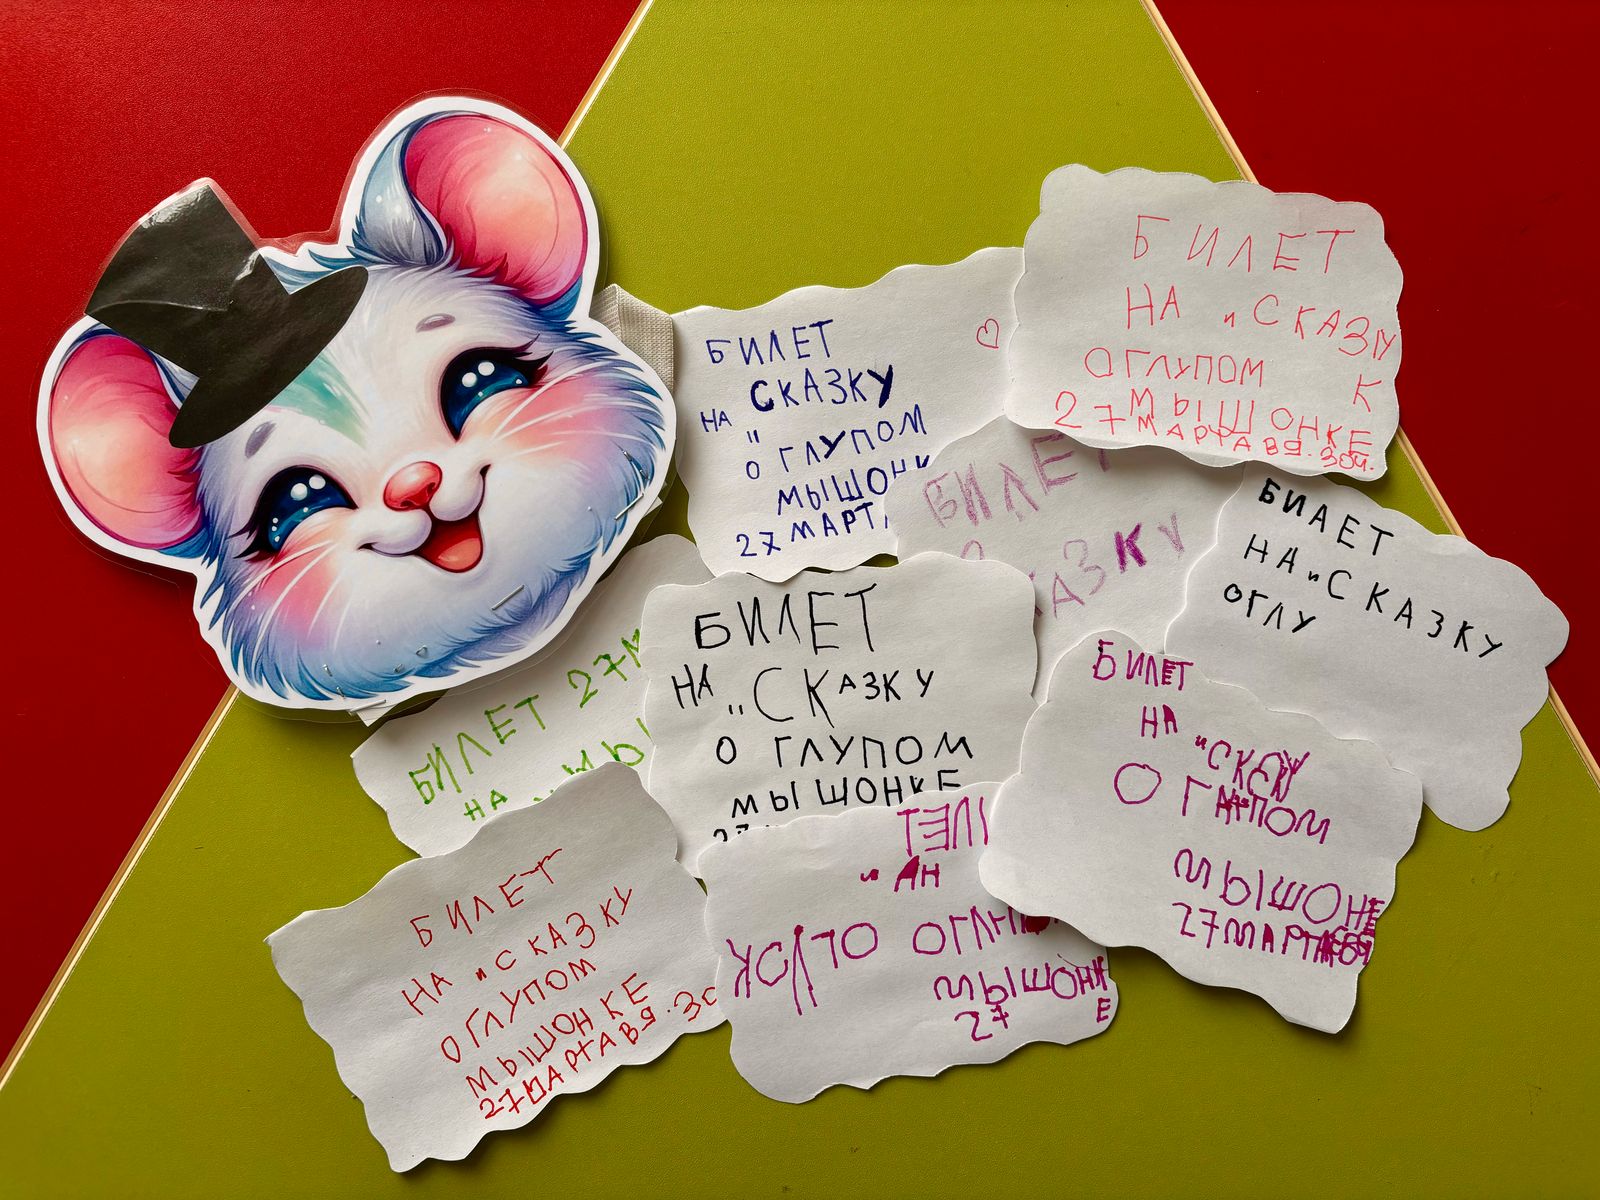 БИЛЕТ
НА "СКАЗКУ
О ГЛУПОМ
МЫШОНКЕ
27 МАРТАВЯ.30Ч.
БИЛЕТ
НА СКАЗКУ
"
О ГЛУПОМ
МЫШОНК
27 МАРТА
БИЛЕТ
КАЗКУ
БИАЕТ
НА "СКАЗКУ
ОГЛУ
БИЛЕТ 27М
НА МЫ
БИЛЕТ
НА
"СКАЗКУ
О ГЛУПОМ
МЫШОНКЕ
27
БИЛЕТ
НА
О
МЫШОНЕ
27МАРТ
БИЛЕТ
НА "СКАЗКУ
О ГЛУПОМ
МЫШОНКЕ
27МАРТАВЯ.30
ИЛЕТ
" АН
МЫШОНКЕ
27